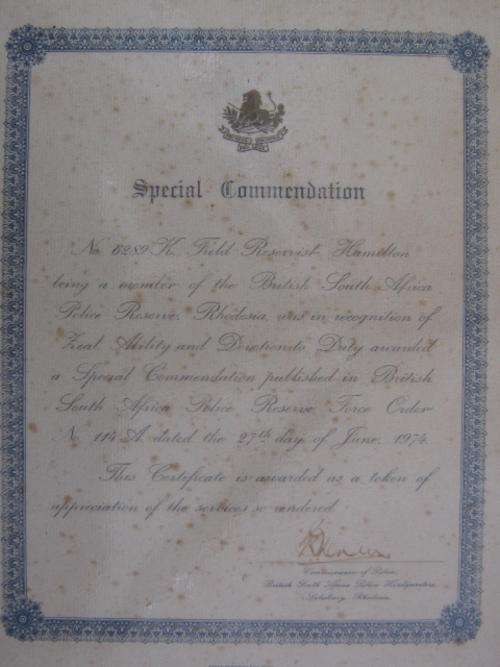 Special Commendation
No. 6289 K, Field Reservist Hamilton
being a member of the British South Africa
Police Reserve, Rhodesia, was in recognition of
Zeal Ability and Devotion to Duty awarded
a Special Commendation published in British
South Africa Police Reserve Force Order
No 114 A dated the 27th day of June, 1974.
This Certificate is awarded as a token of
appreciation of the services so rendered.
Commissioner of Police,
British South Africa Police Headquarters
Salisbury, Rhodesia.